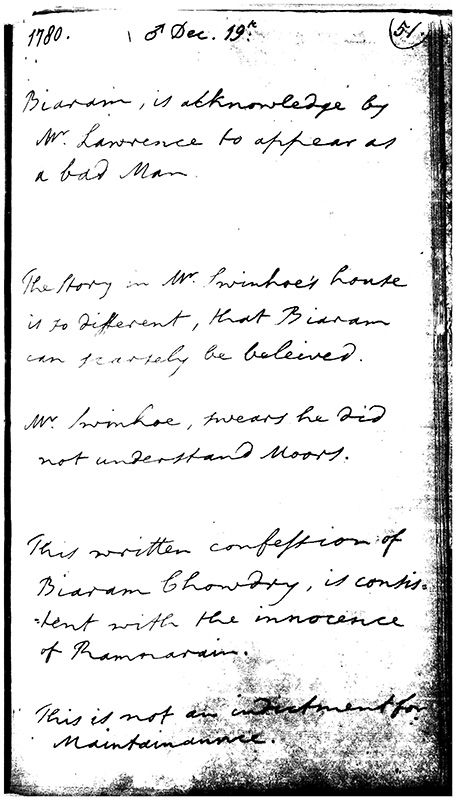 1780. ♂ Dec. 19th. 51.
Biaram, is acknowledge by
Mr. Lawrence to appear as
a bad Man.
The Story in Mr. Swinhoe's house
is so different, that Biaram
can scarsely be beleived.
Mr Swinhoe, swears he did
not understand Moors.
This written confession of
Biaram Chowdry, is consis=
=tent with the innocence
of Ramnarain.
This is not an indictment for
Maintainannce.